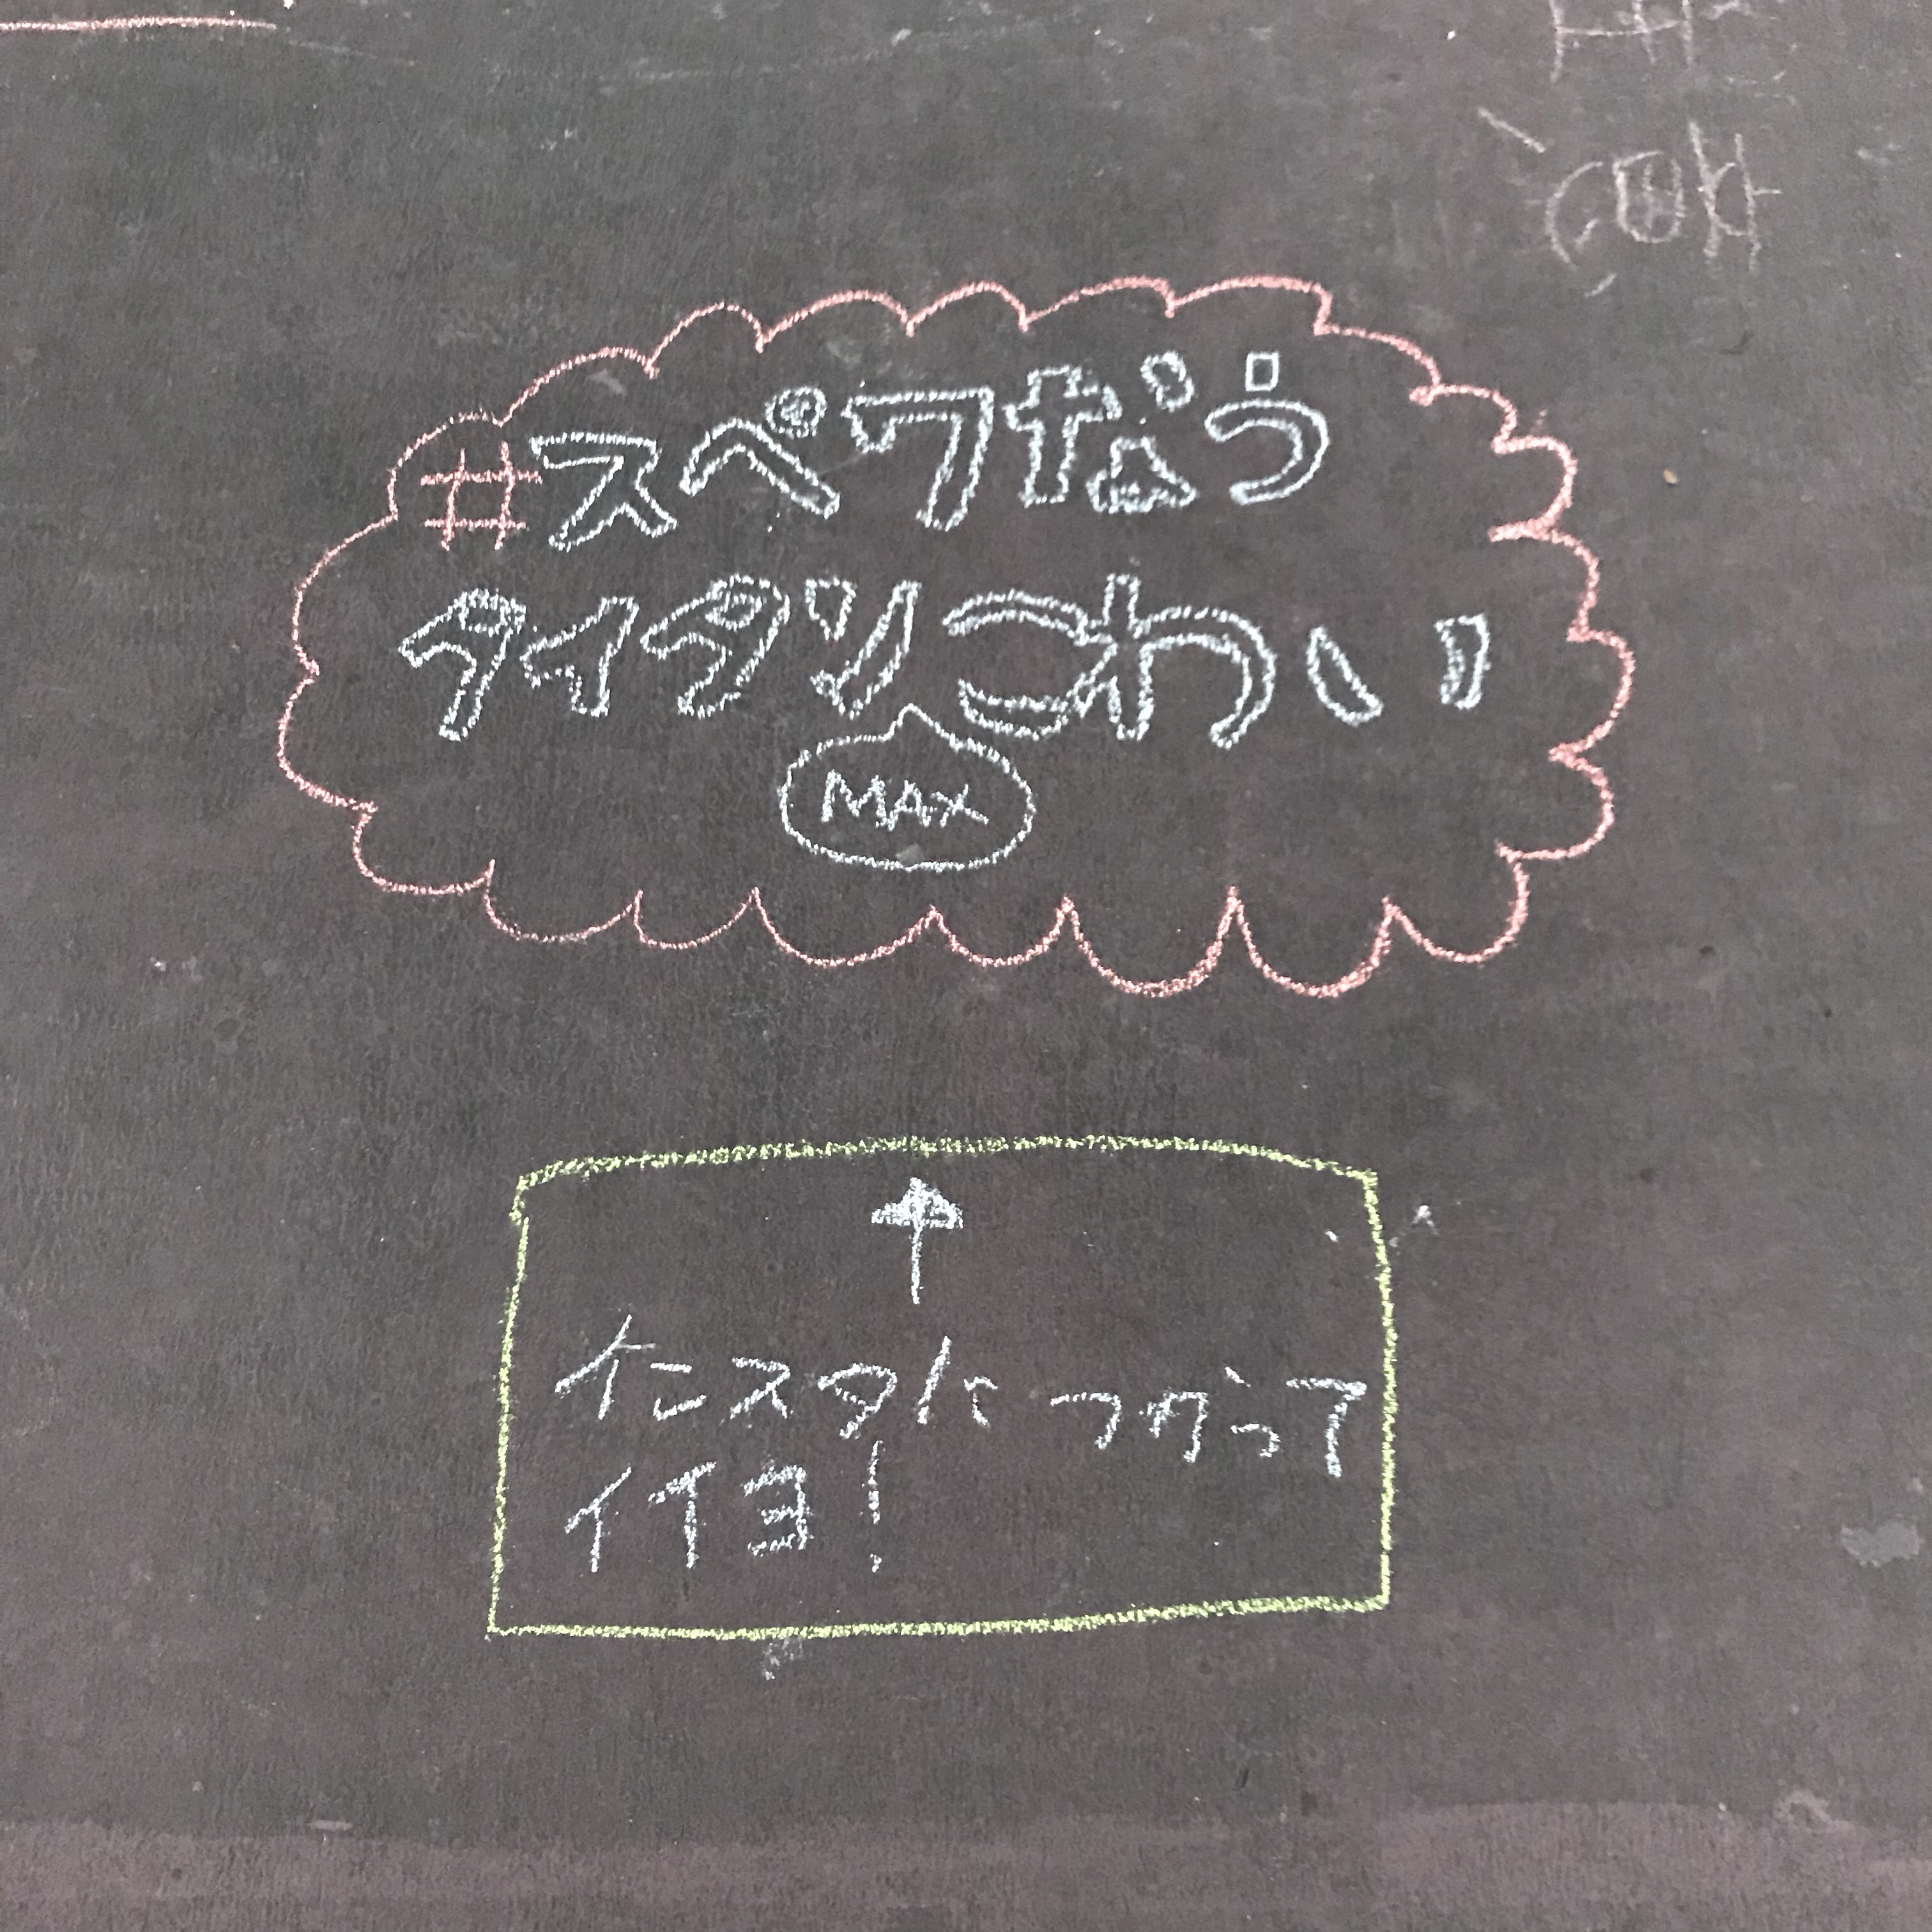 #スペワなう
タイタンこわい
MAX
インスタにつかって
イイヨ!